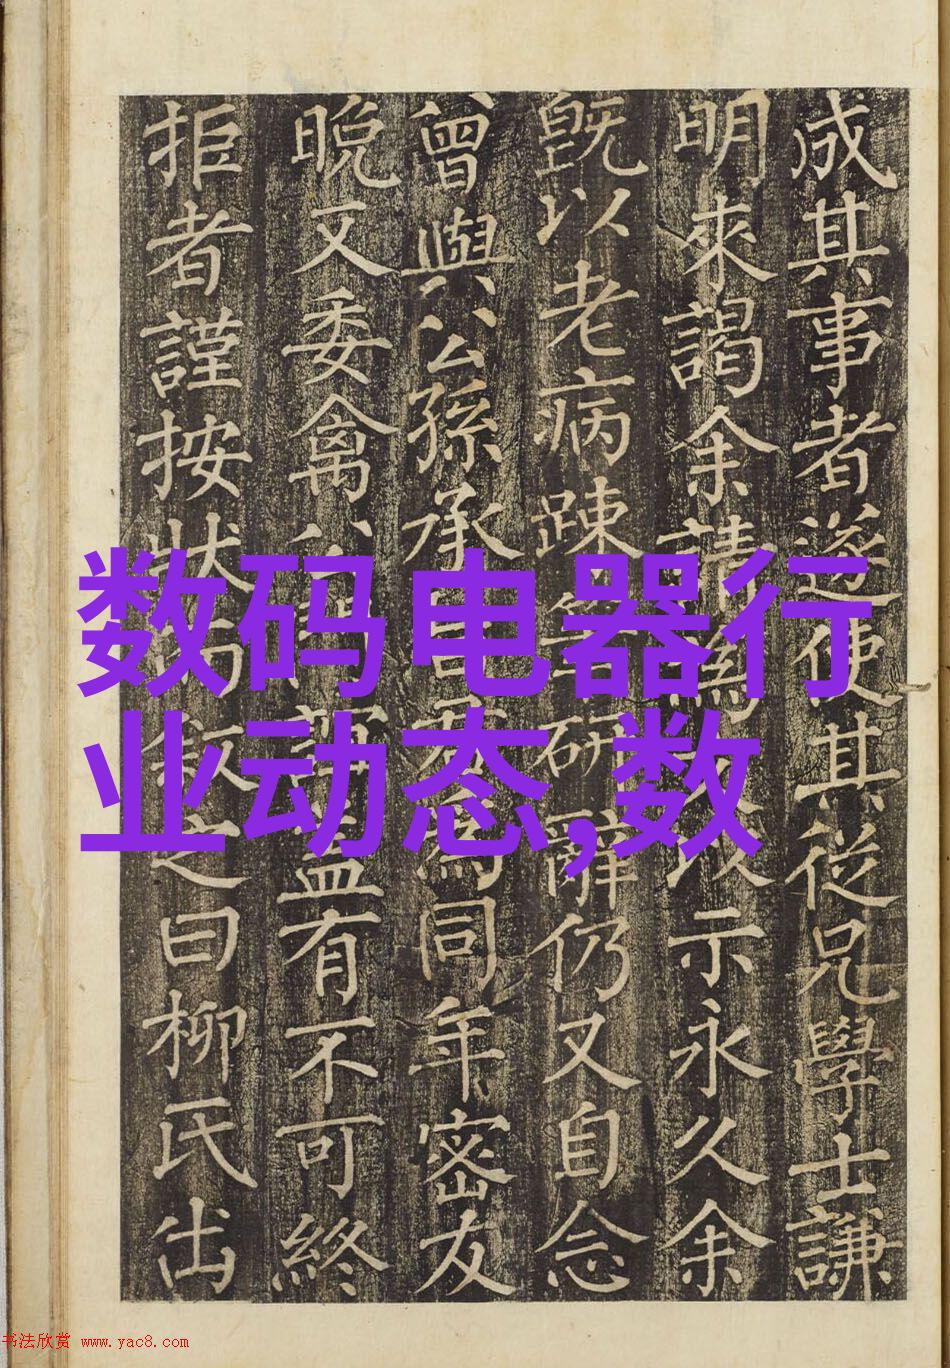 成其事者遂使其從兄學士謙
明來謁余請為以示永久余
既以老病踈研辭仍又自念
曾與公孫承為同年密友
晚又委禽有不可終
拒者謹按狀而敘之曰柳氏出
数码电器行
业动态,数
书法欣赏 www.yac8.com